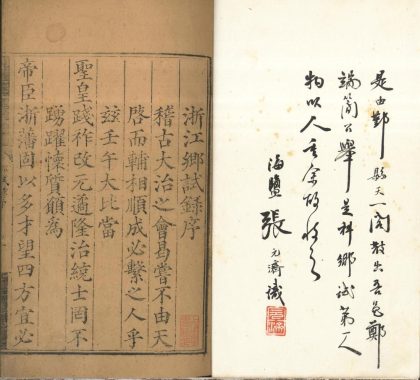 是由鄞縣天一閣散出吾邑鄭
端簡公舉是科鄉試第一人
物以人重余故收之
海鹽張元濟識
浙江鄉試錄序
稽古大治之會曷嘗不由天
啓而輔相順成必繫之人乎
茲壬午大比當
聖皇踐祚改元適隆治統士罔不
踴躍懷質願為
帝臣浙藩固以多才望四方宜必